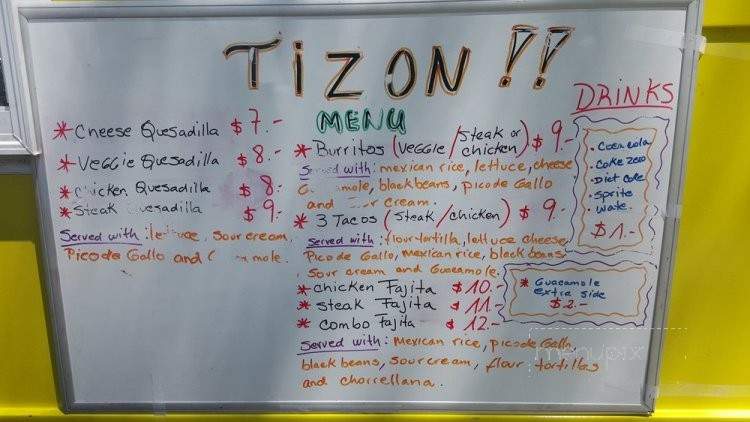 TIZON !!
MENU
* Cheese Quesadilla $7.-
* Veggie Quesadilla $8.-
* Chicken Quesadilla $8.-
* Steak Quesadilla $9.-
Served with: lettuce, sour cream,
Pico de Gallo and
* Burritos (Veggie/Steak or chicken) $9.-
Served with: mexican rice, lettuce, cheese
black beans, pico de Gallo
and cream.
* 3 Tacos (Steak/chicken) $9.-
Served with: flour tortilla, lettuce cheese
Pico de Gallo, mexican rice, black beans
, Sour cream and Guacamole.
* chicken Fajita $10.-
* Steak Fajita $11.-
* Combo Fajita $12.-
Served with: Mexican rice, pico de Gallo,
black beans, sour cream, flour tortillas
and chorrellana.
DRINKS
. Coca cola
. Coke zero
. Diet Coke
. Sprite
. Wate
$1.-
* Guacamole
extra side
$2.-
menupix